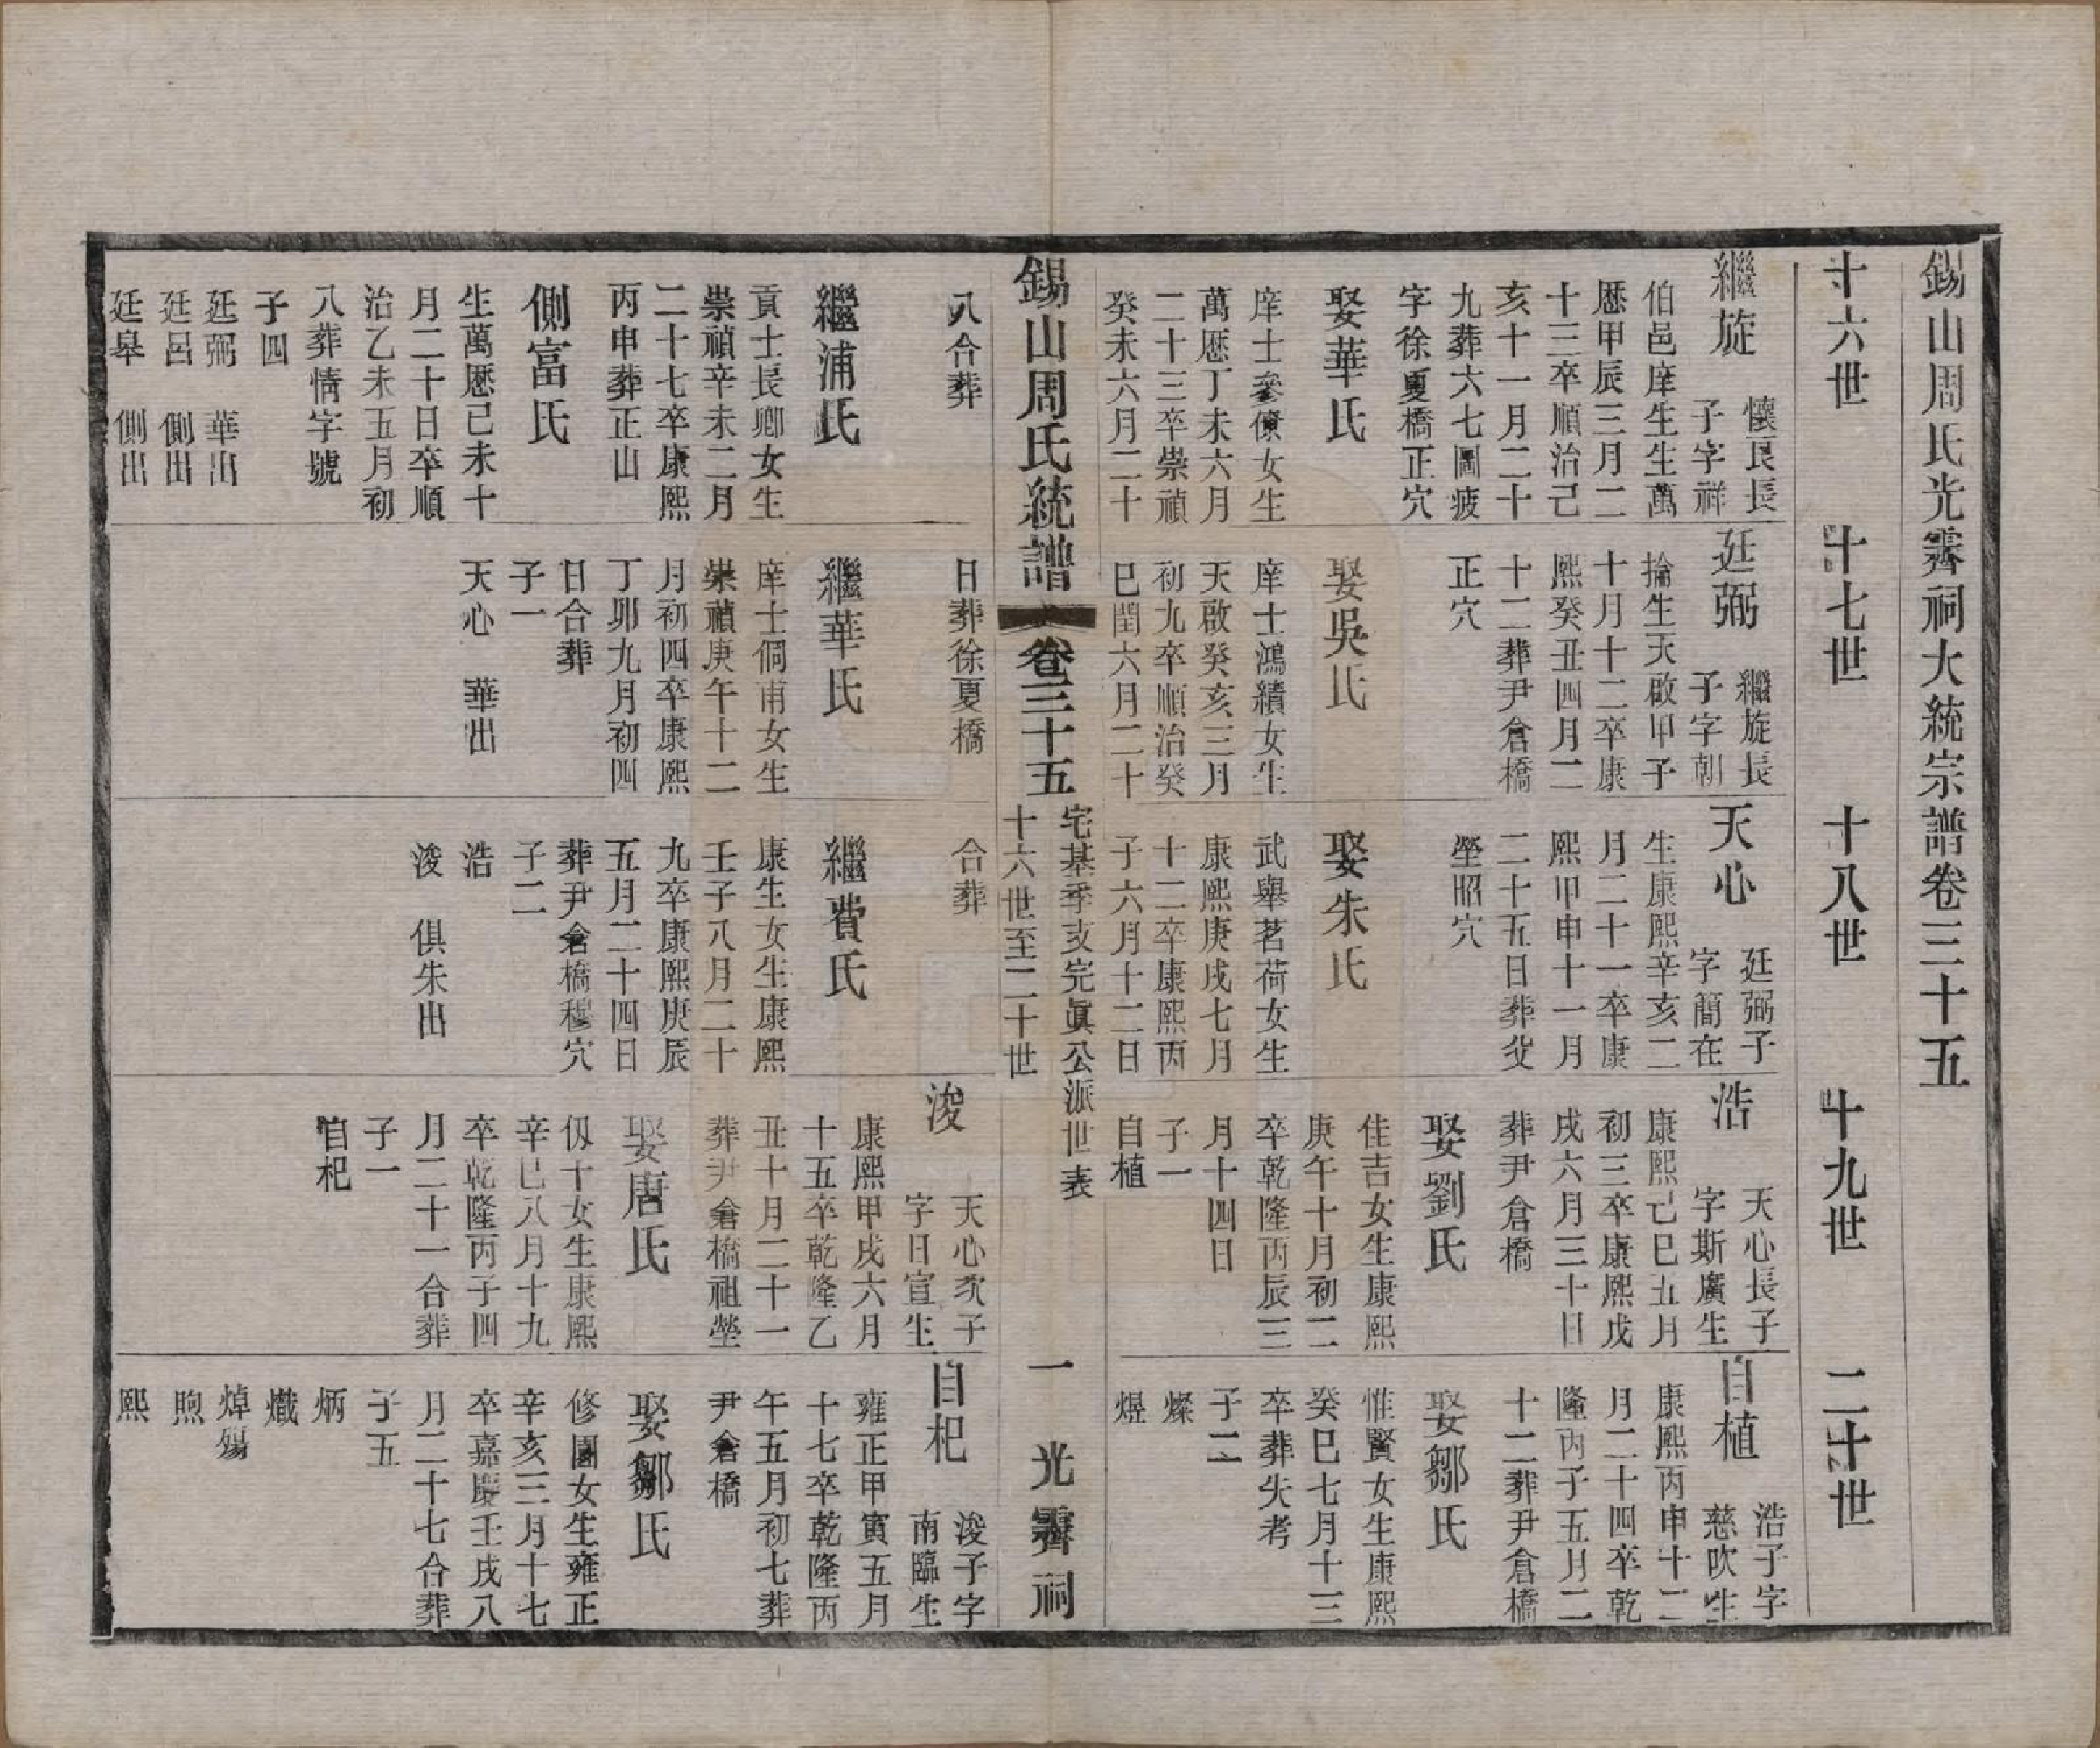 錫山周氏光霽祠大統宗譜卷三十五
十六世
十七世
十八世
十九世
二十世
繼旋
懷民長
子字祥
伯邑庠生生萬
厯甲辰三月二
十三卒順治己
亥十一月二十
九葬六七圖疲
字徐夏橋正穴
娶華氏
庠士參僚女生
萬厯丁未六月
二十三卒崇禎
癸未六月二十
八合葬
繼浦氏
貢士長卿女生
崇禎辛未二月
二十七卒康熙
丙申葬正山
側富氏
生萬厯己未十
月二十日卒順
治乙未五月初
八葬情字號
子四
廷弼 華出
廷呂 側出
廷皋 側出
廷弼
繼旋長
子字朝
掄生天啟甲子
十月十二卒康
熙癸丑四月二
十二葬尹倉橋
正穴
娶吳氏
庠士鴻績女生
天啟癸亥三月
初九卒順治癸
巳閏六月二十
日葬徐夏橋
繼華氏
庠士侗甫女生
崇禎庚午十二
月初四卒康熙
丁卯九月初四
日合葬
子一
天心 華出
天心
廷弼子
字簡在
生康熙辛亥二
月二十一卒康
熙甲申十一月
二十五日葬父
塋昭穴
娶朱氏
武舉茗荷女生
康熙庚戌七月
十二卒康熙丙
子六月十二日
合葬
繼費氏
康生女生康熙
壬子八月二十
九卒康熙庚辰
五月二十四日
葬尹倉橋穆穴
子二
浩
浚 俱朱出
浩
天心長子
字斯廣生
康熙己巳五月
初三卒康熙戊
戌六月三十日
葬尹倉橋
娶劉氏
佳吉女生康熙
庚午十月初二
卒乾隆丙辰三
月十四日
子一
自植
浚
天心次子
字日宣生
康熙甲戌六月
十五卒乾隆乙
丑十月二十一
葬尹倉橋祖塋
娶唐氏
仭千女生康熙
辛巳八月十九
卒乾隆丙子四
月二十一合葬
子一
自杞
自植
浩子字
慈吹生
康熙丙申十二
月二十四卒乾
隆丙子五月二
十二葬尹倉橋
娶鄒氏
惟賢女生康熙
癸巳七月十三
卒葬失考
子二
燦
煜
自杞
浚子字
南臨生
雍正甲寅五月
十七卒乾隆丙
午五月初七葬
尹倉橋
娶鄒氏
修園女生雍正
辛亥三月十七
卒嘉慶壬戌八
月二十七合葬
子五
炳
熾
焯殤
煦
熙
錫山周氏統譜
卷三十五
宅基季支完眞公派世表
十六世至二十世
一
光霽祠